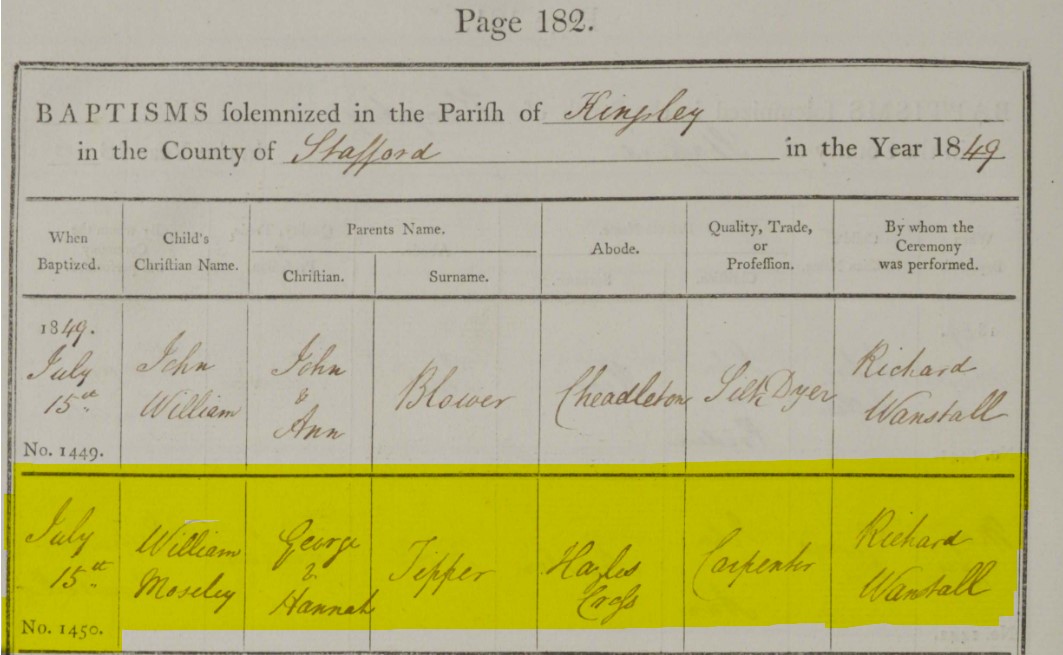 Page 182.
BAPTISMS solemnized in the Parish of Kingsley
in the County of Stafford in the Year 1849
When Baptized.
Child's Christian Name.
Parents Name.
Christian.
Surname.
Abode.
Quality, Trade, or Profession.
By whom the Ceremony was performed.
1849.
July
15th
No. 1449.
John
William
John
&
Ann
Blower
Cheadleton
Silk Dyer
Richard
Wanstall
July
15th
No. 1450.
William
Moseley
George
&
Hannah
Tipper
Hazles
Cross
Carpenter
Richard
Wanstall